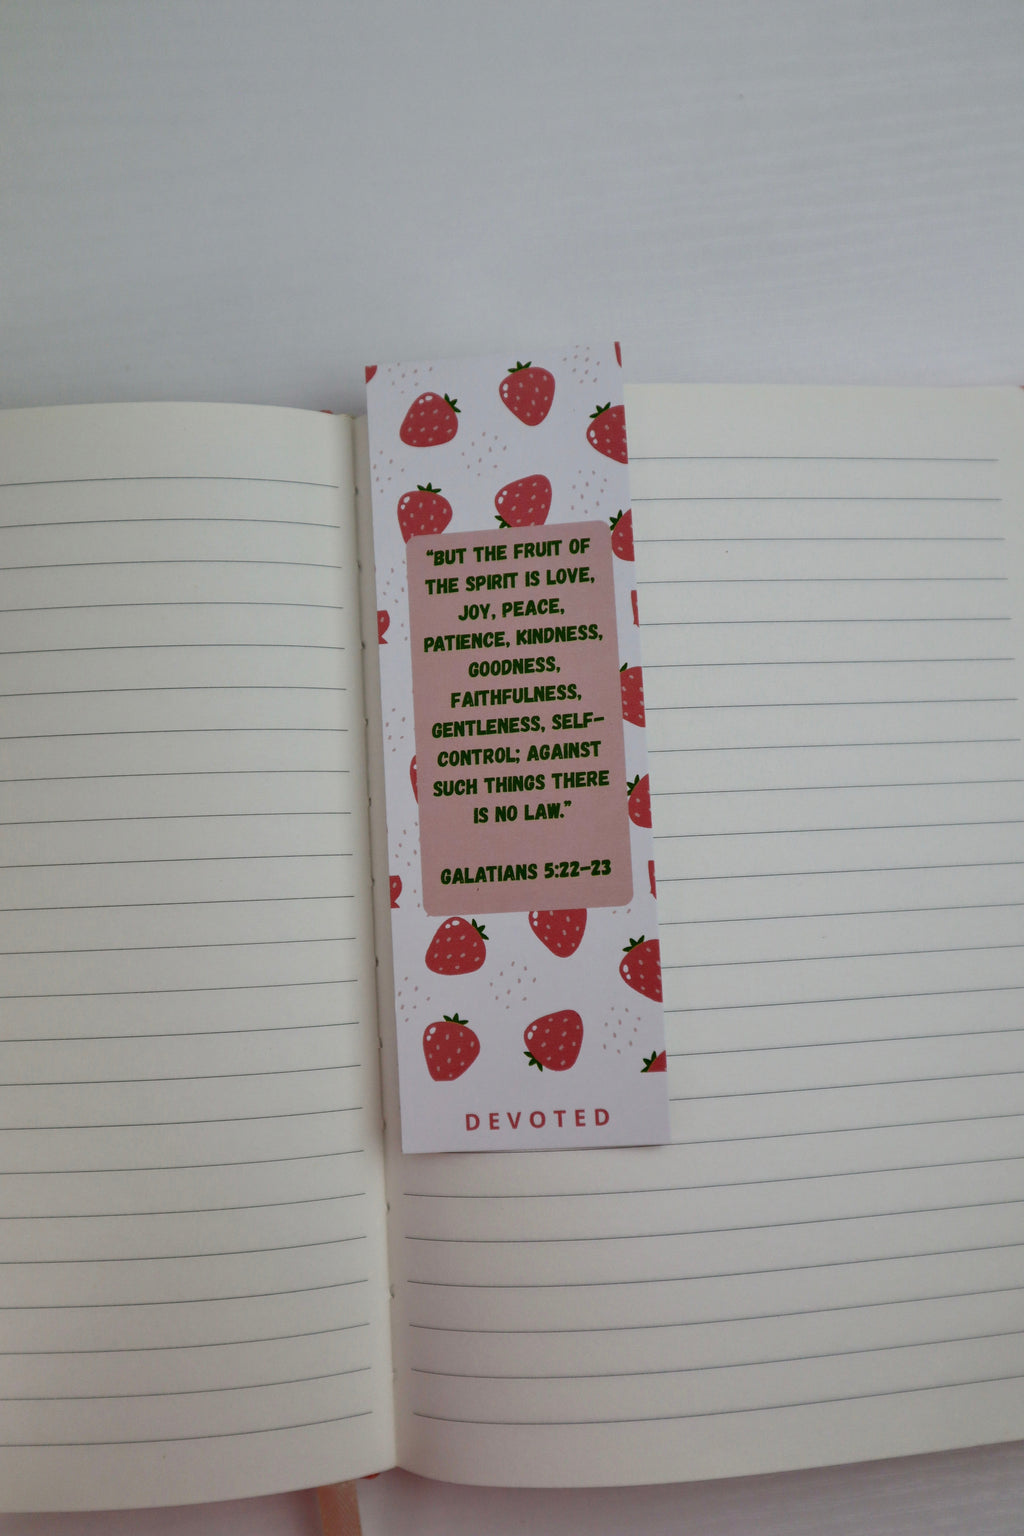 “BUT THE FRUIT OF
THE SPIRIT IS LOVE,
JOY, PEACE,
PATIENCE, KINDNESS,
GOODNESS,
FAITHFULNESS,
GENTLENESS, SELF-
CONTROL; AGAINST
SUCH THINGS THERE
IS NO LAW.”
GALATIANS 5:22-23
DEVOTED